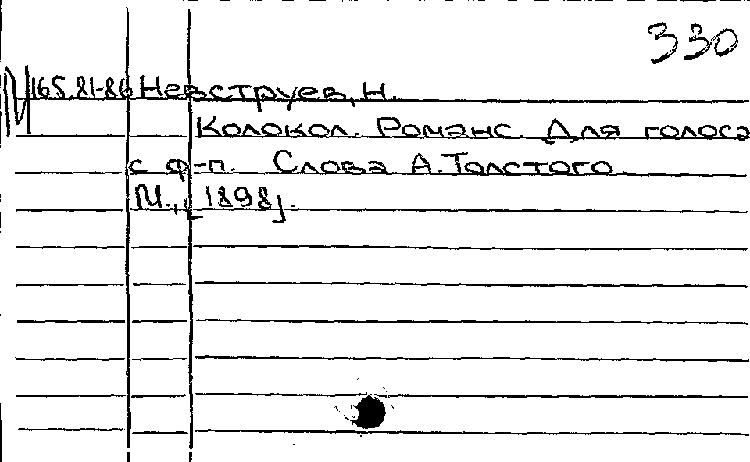 330
М 165.81-86 Невструев, Н.
Колокол. Романс. Для голоса
с ф-п. Слова А. Толстого.
М., [1898].